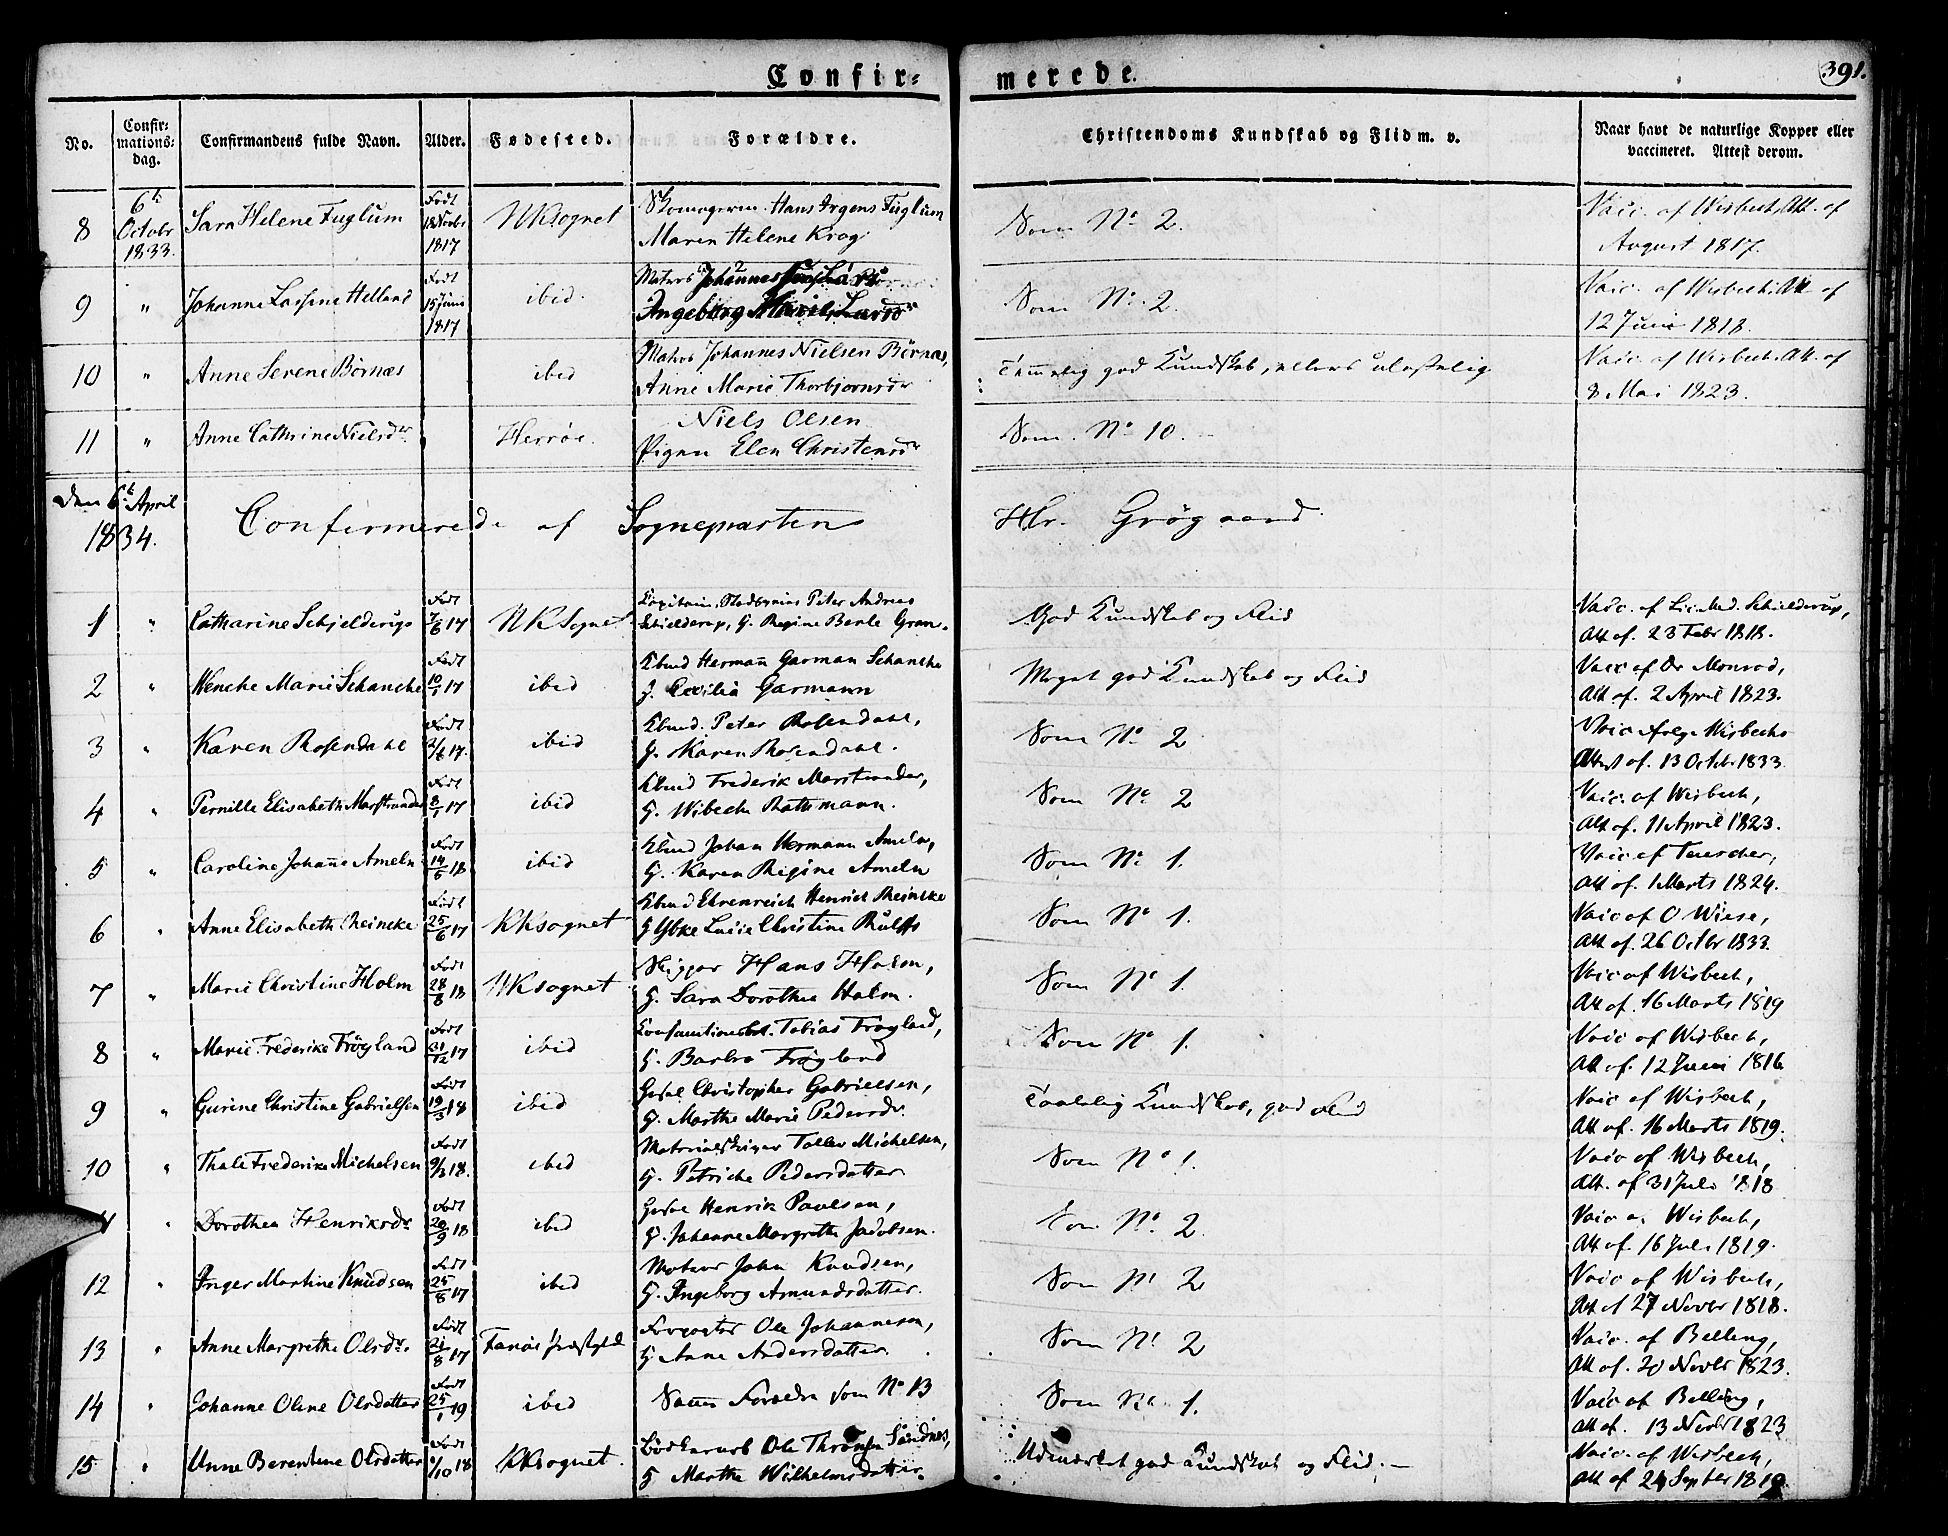 Confirmerede.
391.
No. Confirmationsdag. Confirmandens fulde Navn. Alder. Fødested. Forældre. Christendoms Kundskab og Flid m. v. Naar havt de naturlige Kopper eller vaccineret. Attest derom.
8 6te Octobr 1833. Sara Helene Fuglum Født 1817 NKsognet Hans Irgens Fuglum Som No 2. Vacc. af Wisbech, Att. af
Maren Helene Krog August 1817.
9 " Johanne Helland Født 15 Junii 1817 ibid. Matros Som No 2. Vacc. af Wisbech. Att af
Ingeborg 12 Juni 1818.
10 " Anne Serene Børnes ibid Matros Johannes Nielsen Børnæs, Temelig god Kundskab, ellers ulastelig Vacc. af Wisbech. Att. af
Anne Marie Thorbjørnsdr 8 Mai 1823.
11 " Anne Cathrine Nielsdr Herrøe. Niels Olsen Som No 10.
Pigen Elen Christensdr
Den 6te April 1834. Confirmerede af Sognepresten Hr. Grøgaard
1 " Catharine Schjelderup Født 7/6 17 NKSognet Capitain, Peter Andreas God Kundskab og Flid Vacc. af Lic. Med. Schjelderup,
Schjelderup, G. Regine Bente Gran. Att af. 23 Febr 1818.
2 " Wenche Marie Schanche Født 17 ibid Kbmd Herman Garman Schanche Meget god Kundskab og Flid Vacc af Dr Monrad,
G. Cecilia Garmann Att af. 2 April 1823.
3 " Karen Rosendahl Født 17. ibid Kbmd. Peter Rosendahl, Som No 2 Vacc ifølge Wisbechs
G. Karen Rosendahl. Attest af. 13 Octbr 1833.
4 " Pernille Elisabeth Marstrander Født 17 ibid Kbmd Frederik Marstrander, Som No 2 Vacc. af Wisbech,
G. Wibeche Rathmann. Att af. 11 April 1823.
5 " Caroline Johanne Ameln Født 14/5 18 ibid Kbmd Johan Hermann Ameln, Som No 1. Vacc af Teuscher,
G. Karen Regine Ameln Att af. 1 Marts 1824.
6 " Anne Elisabeth Reincke Født 25/6 17 KKsognet Kbmd Ehrenreich Henrich Reincke Som No 1. Vacc af O Wiese,
G Lucie Christine Rulffs Att af. 26 Octbr 1833.
7 " Marie Christine Holm Født 28/8 18 NKsognet Skipper Hans Holm, Som No 1. Vacc af Wisbech,
G. Sara Dorothea Holm. Att af. 16 Marts 1819
8 " Marie Frederike Frøyland Født 31/12 17 ibid Tobias Frøyland, Som No 1. Vacc af Wisbech,
G. Barbra Frøyland Att af. 12 Juni 1816
9 " Gurine Christine Gabrielsen Født 19/3 18 ibid Christopher Gabrielsen, Taalelig Kundskab, god Flid Vacc af Wisbech,
G. Marthe Marie Pedersdr. Att af. 16 Marts 1819.
10 " Thale Frederike Michelsen Født 18. ibid Materialskriver Tollev Michelsen, Som No 1. Vacc af Wisbech,
G. Petriche Pedersdatter Att. af 31 Juli 1818
11 " Dorothea Henriksdr. Født 20/9 18 ibid Henrik Paulsen, Som No 2. Vacc af Wisbech,
G. Johanne Margrethe Jacobsen. Att af. 16 Juli 1819.
12 " Inger Martine Knudsen Født 25/8 17 ibid Matros John Knudsen, Som No 2 Vacc af Wisbech,
G. Ingeborg Amundsdatter. Att af 27 Novbr 1818.
13 " Anne Margrethe Olsdr. Født 21/8 17 Fanøe Præstgjeld Ole Johannesen, Som No 2 Vacc. af Belling,
G Anne Andersdatter Att af. 20 Novbr 1823.
14 " Johanne Oline Olsdatter Født 25/1 19 ibid Samme Forældre som No 13 Som No 1. Vacc af Belling,
Att af. 13 Novbr 1823
15 " Anne Berentine Olsdatter Født 18 KKsognet. Ole Sandnes, Udmærket god Kundskab og Flid. Vacc. af Wisbech,
G Marthe Wilhelmsdatter. Att af 24 Septbr 1819.